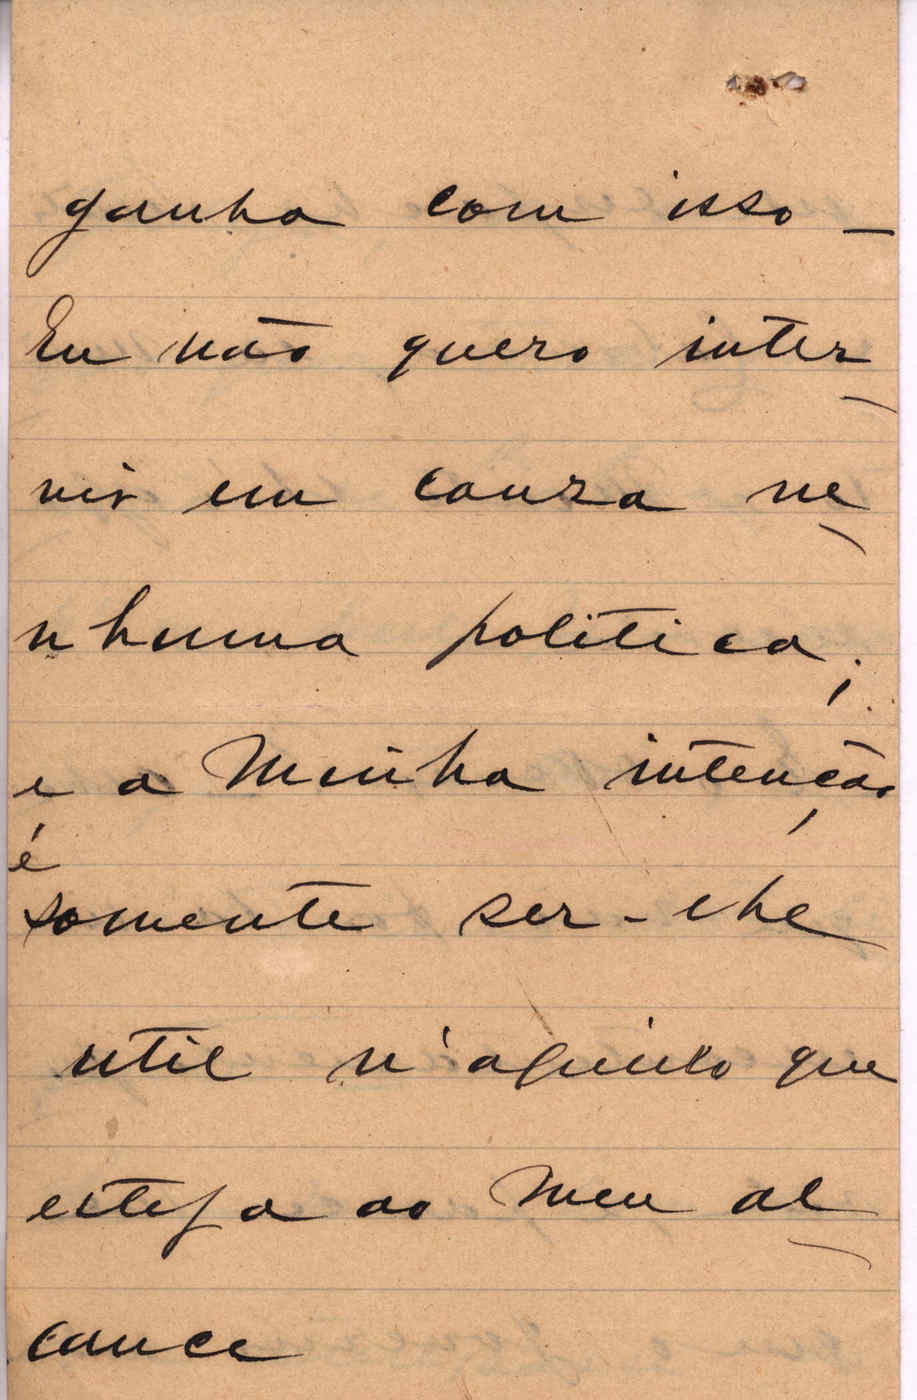 ganha com isso —
Eu não quero inter-
vir em couza ne-
nhuma politica;
e a minha intenção
é
somente ser-lhe
util n'aquillo que
esteja ao meu al-
cance